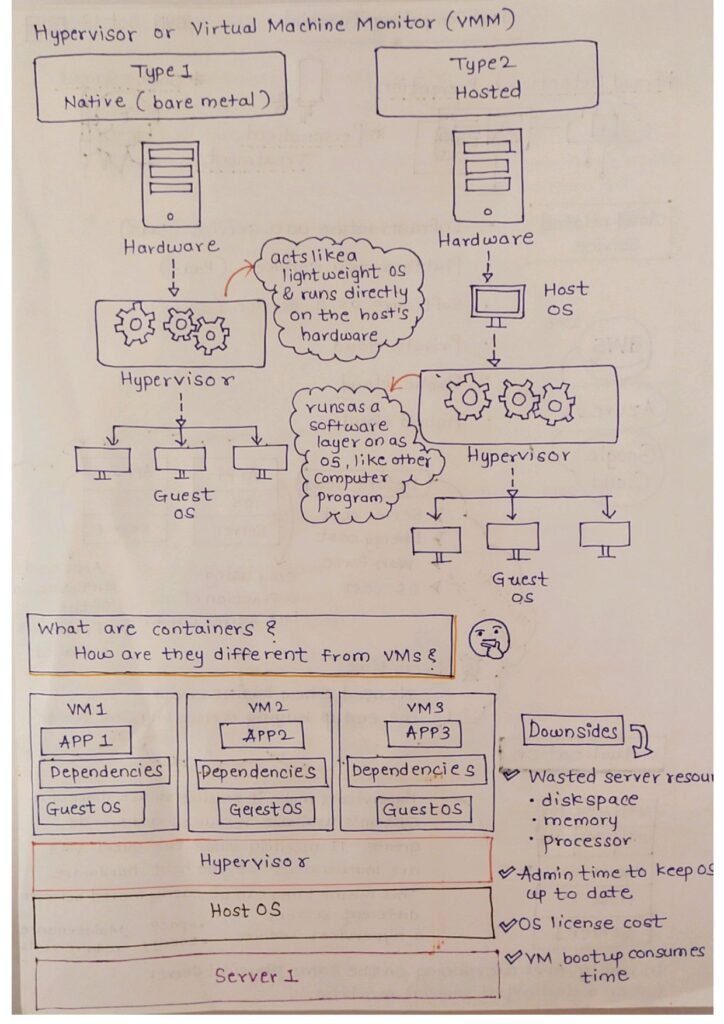 Hypervisor or Virtual Machine Monitor (VMM)
Type 1
Native (bare metal)
Type 2
Hosted
Hardware
Hardware
acts like a
lightweight OS
& runs directly
on the host's
hardware
Host
OS
Hypervisor
Guest
OS
runs as a
software
layer on as
OS, like other
computer
program
Hypervisor
Guest
OS
What are containers &
How are they different from VMs &
VM1
APP 1
Dependencies
Guest OS
VM2
APP2
Dependencies
Gelest OS
VM3
APP3
Dependencies
Guest OS
Hypervisor
Host OS
Server 1
Downsides
Wasted server resour
• diskspace
• memory
• processor
Admin time to keep OS
up to date
OS license cost
VM bootup consumes
time